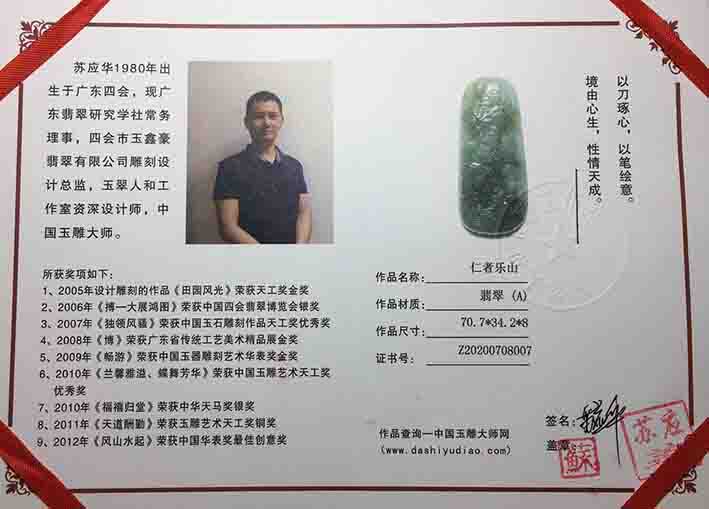 苏应华1980年出
生于广东四会，现广
东翡翠研究学社常务
理事，四会市玉鑫豪
翡翠有限公司雕刻设
计总监，玉翠人和工
作室资深设计师，中
国玉雕大师。
以刀琢心，以笔绘意。
境由心生，性情天成。
所获奖项如下：
1、2005年设计雕刻的作品《田园风光》荣获天工奖金奖
2、2006年《搏一大展鸿图》荣获中国四会翡翠博览会银奖
3、2007年《独领风骚》荣获中国玉石雕刻作品天工奖优秀奖
4、2008年《博》荣获广东省传统工艺美术精品展金奖
5、2009年《畅游》荣获中国玉器雕刻艺术华表奖金奖
6、2010年《兰馨雅溢、蝶舞芳华》荣获中国玉雕艺术天工奖
优秀奖
7、2010年《福禧归堂》荣获中华天马奖银奖
8、2011年《天道酬勤》荣获玉雕艺术天工奖铜奖
9、2012年《风山水起》荣获中国华表奖最佳创意奖
作品名称：仁者乐山
作品材质：翡翠（A）
作品尺寸：70.7*34.2*8
证书号：Z20200708007
作品查询—中国玉雕大师网
(www.dashiyudiao.com)
签名：
盖章：
蘇
苏应